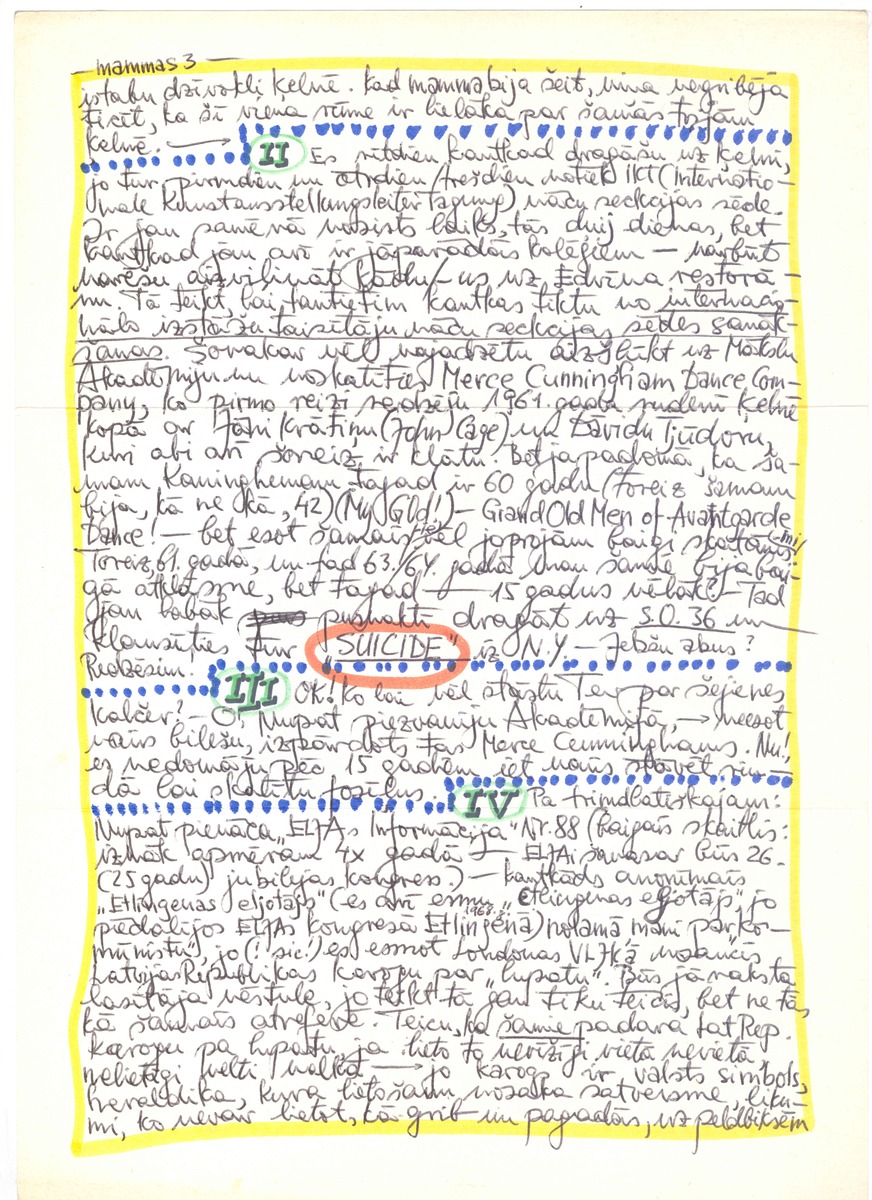 mammas 3
istabu dzīvoklī Ķelnē. Kad mamma bija šeit, viņa negribēja
ticēt, ka šī viena rūme ir lielāka par šamās trijām
Ķelnē. →
II Es rītdien kautkad dragāšu uz Ķelni,
jo tur pirmdien un otrdien/trešdien notiek IKT (Internatio-
nale Kunstausstellungsleiter Tagung) vācu sekcijas sēde.
Ir jau samērā nosists laiks, tās divi dienas, bet
kautkad jau arī ir jāparādās kolēģiem — varbūt
varēšu aizvilināt kādu/-us uz Edvīna restorā-
nu. Tā teikt, lai tautietim kautkas tiktu no internacio-
nālo izstāžu taisītāju vācu sekcijas sēdes sanāk-
šanas. Šovakar vēl vajadzētu aizšļūkt uz Mākslu
Akadēmiju un noskatīties Merce Cunningham Dance Com-
pany, ko pirmo reizi redzēju 1961. gada rudenī Ķelnē
kopā ar Jāni Krātiņu (John Cage) un Dāvidu Tjūdoru,
kuri abi arī šoreiz ir klātu. Bet ja padomā, ka ša-
mam Kaninghemam tagad ir 60 gadu (toreiz šamam
bija, kā ne kā, 42) (My God!) — Grand Old Men of Avantgarde
Dance! — bet esot šamais vēl joprojām baigi skatāms/-mi/
Toreiz, 61. gadā, un tad 63./64. gadā man šamie bija bai-
gā atklāsme, bet tagad — 15 gadus vēlāk? — Tad
jau labāk pusnaktī dragāt uz S.O. 36 un
klausīties tur "SUICIDE" iz N.Y. — Jebšu abus?
Redzēsim!
III OK! Ko lai vēl stāstu Tev par šejienes
kalčer? — O, nupat piezvanīju Akadēmijā, → neesot
vairs biļešu, izpārdots tas Merce Cunninghams. Nu!,
es nedomāju pēc 15 gadiem iet stāvēt rin-
dā lai skatītu fosīlus.
IV Pa trimdlatiskajam:
Nupat pienāca „ELJAs Informācija" Nr. 88 (baigais skaitlis:
iznāk apmēram 4x gadā — ELJAi šovasar būs 26.
(25 gadu) jubilejas kongress.) — kautkāds anonīmais
„Etlingenas eljotājs" (-es arī esmu „Etlingenas eljotājs" jo
piedalījos ELJAs kongresā Etlingenā) nolamā mani par ko-
mūnistu, jo (! sic!) es esmot Londonas VLJK'ā nosaucis
Latvijas Republikas karogu par „lupatu". Būs jāraksta
lasītāja vēstule, jo teikt tā gan tiku teicis, bet ne tās,
kā šamais atreferē. Teicu, ka šamie padara Lat Rep.
karogu pa lupatu, ja lieto to nevīžīgi vietā nevietā
nelietīgi velti valkā → jo karogs ir valsts simbols,
heraldika, kura lietošanu nosaka satversme, liku-
mi, ko nevar lietot, kā grib un pagadās, uz peldbiksēm